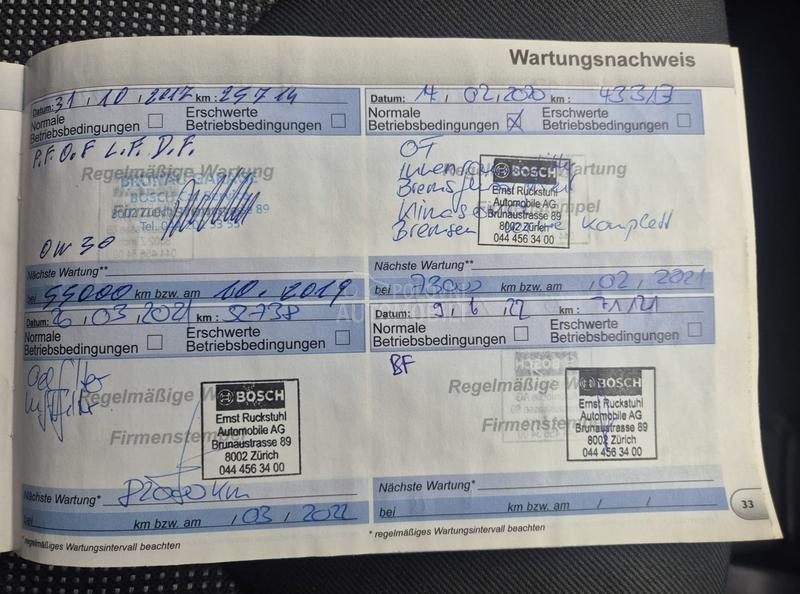 Wartungsnachweis
Datum: 31 . 10 . 2017 km: 29714
Normale Betriebsbedingungen
Erschwerte Betriebsbedingungen
P.F. O.F L.F. D.F.
Regelmäßige Wartung
BRUNAU GARAGE
BOSCH
8002
89
Tel.
OW30
Nächste Wartung**
bei 55000 km bzw. am 10 . 2019
Datum: 17 . 02 . 2020 km: 43317
Normale Betriebsbedingungen
Erschwerte Betriebsbedingungen
OT
BOSCH
Ernst Ruckstuhl
Automobile AG
Brunaustrasse 89
8002 Zürich
044 456 34 00
Bremsen komplett
Nächste Wartung**
bei 73000 km bzw. am . 02 . 2021
Datum: 26 . 03 . 2021 km:
Normale Betriebsbedingungen
Erschwerte Betriebsbedingungen
Oelfilter
Luftfilter
Regelmäßige
Firmenstempel
BOSCH
Ernst Ruckstuhl
Automobile AG
Brunaustrasse 89
8002 Zürich
044 456 34 00
Nächste Wartung*
82000 km
bei km bzw. am . 03 . 2022
* regelmäßiges Wartungsintervall beachten
Datum: 9 . 6 . 22 km: 71121
Normale Betriebsbedingungen
Erschwerte Betriebsbedingungen
BF
Regelmäßige
Firmenstempel
BOSCH
Ernst Ruckstuhl
Automobile AG
Brunaustrasse 89
8002 Zürich
044 456 34 00
Nächste Wartung*
bei km bzw. am / /
* regelmäßiges Wartungsintervall beachten
33